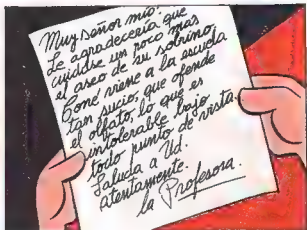 Muy señor mío:
Le agradecería que
cuidase un poco más
el aseo de su sobrino.
Goné viene a la escuela
tan sucio, que ofende
el olfato, lo que es
intolerable bajo
todo punto de vista.
Saluda a Ud.
atentamente.
la Profesora.